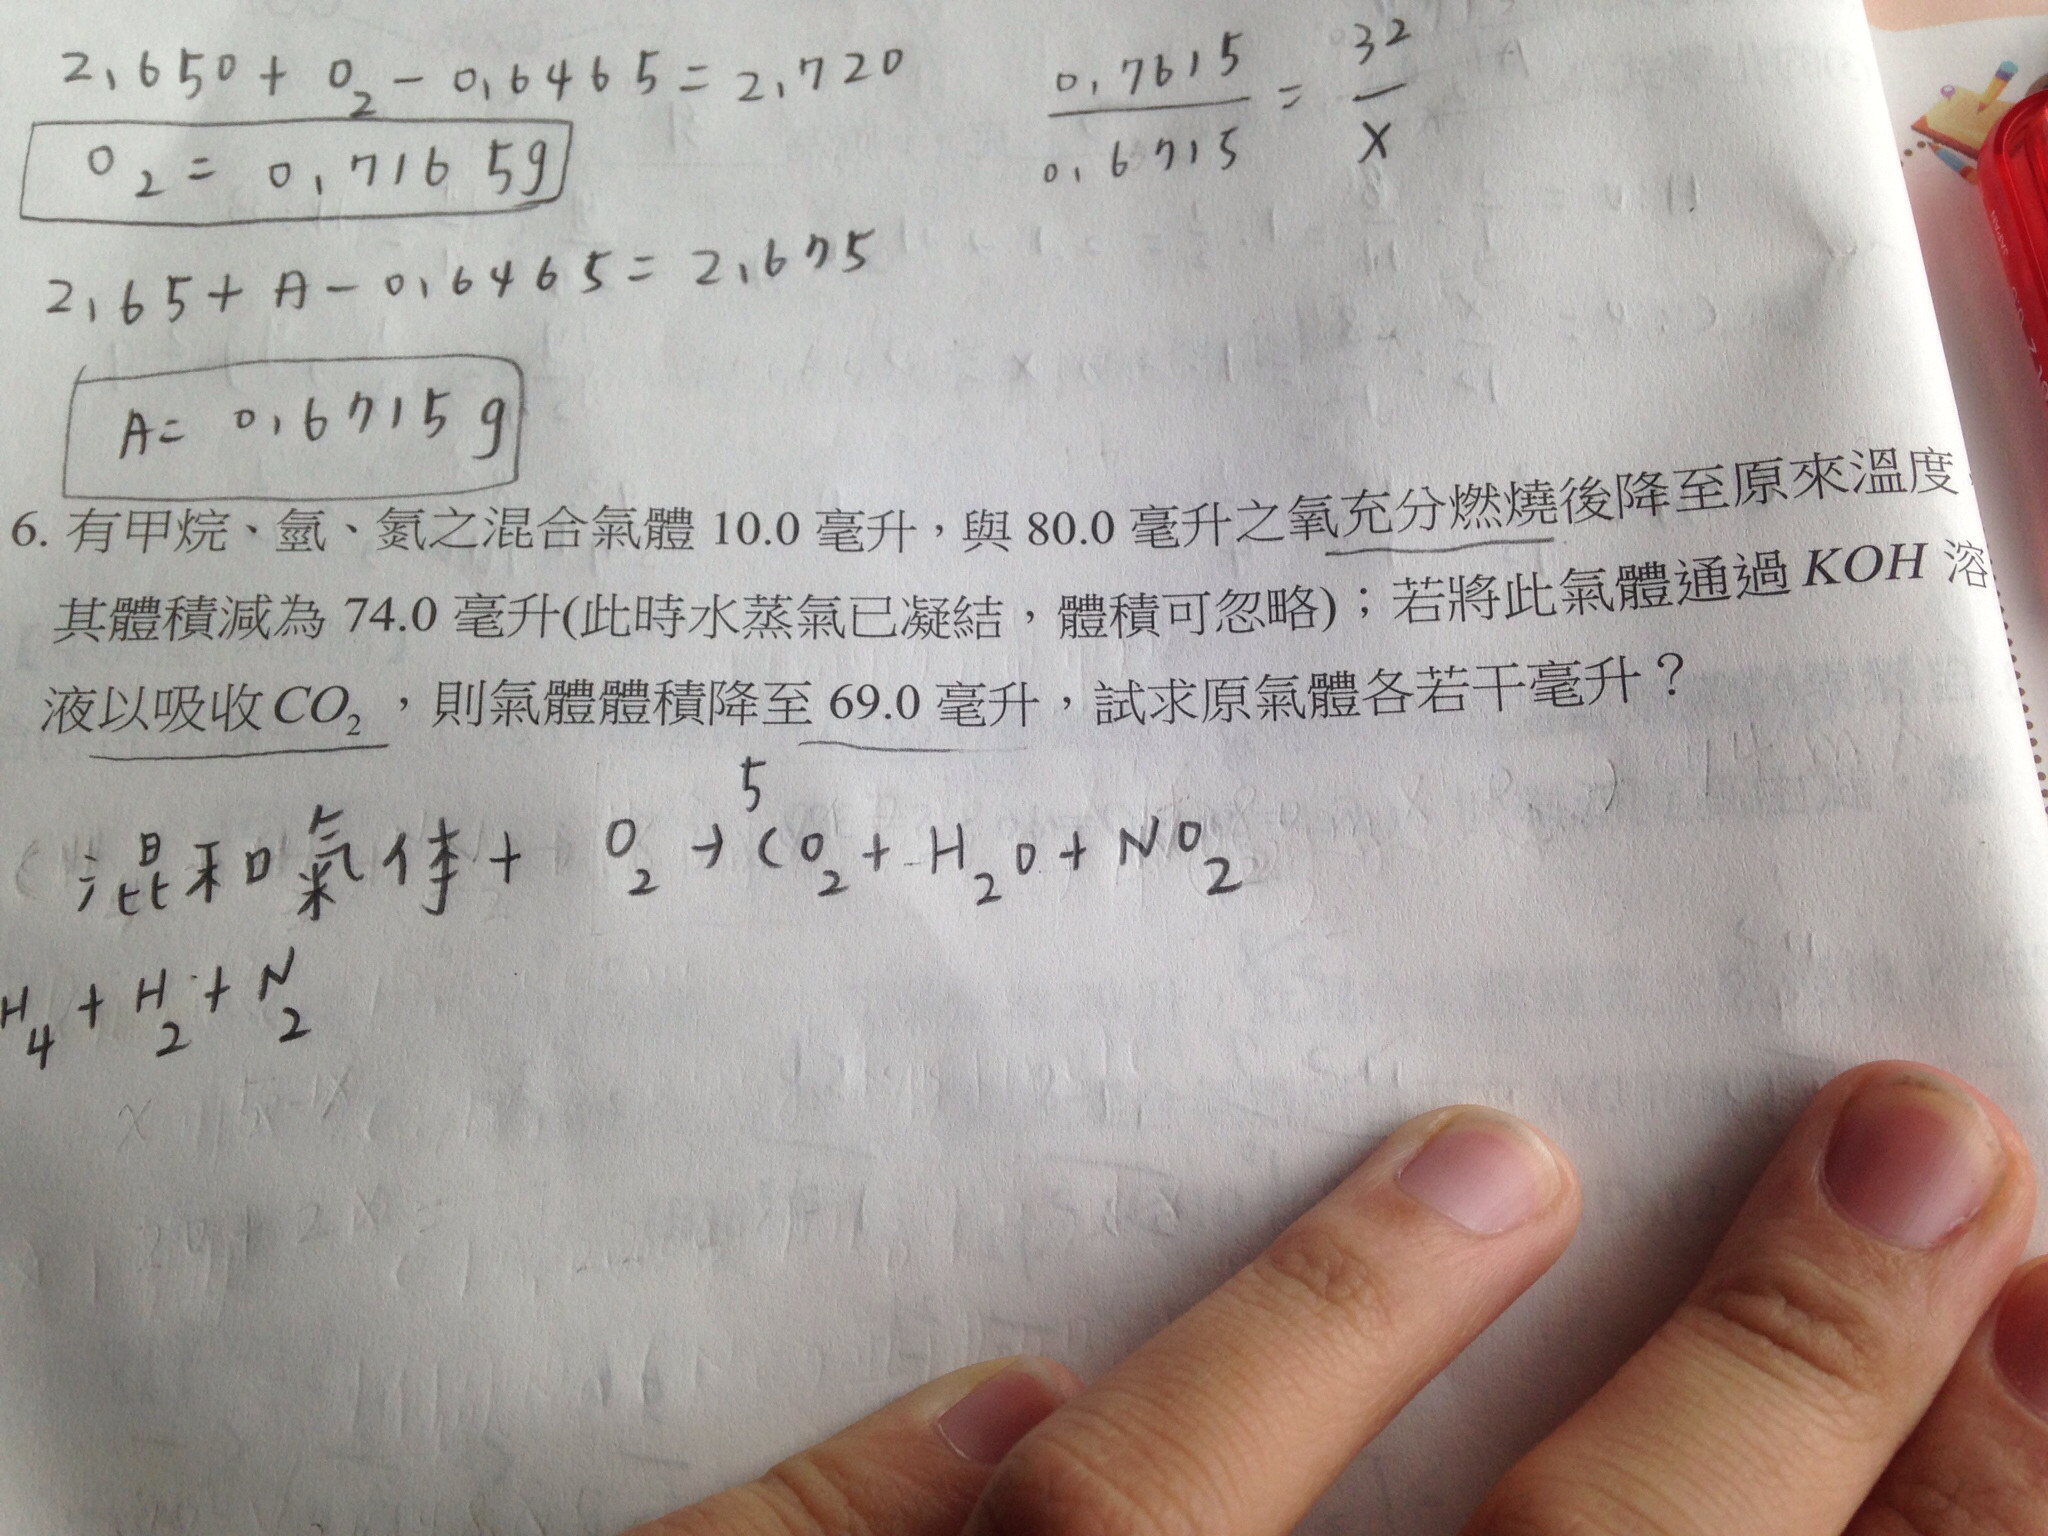 2.650 + O2 - 0.6465 = 2.720
O2 = 0.7165g
2.65 + A - 0.6465 = 2.675
A = 0.6715g
0.7615 / 0.6715 = 32 / X
6. 有甲烷、氫、氮之混合氣體 10.0 毫升，與 80.0 毫升之氧充分燃燒後降至原來溫度，
其體積減為 74.0 毫升(此時水蒸氣已凝結，體積可忽略)；若將此氣體通過 KOH 溶
液以吸收CO2，則氣體體積降至 69.0 毫升，試求原氣體各若干毫升？
5
混和氣体 + O2 → CO2 + H2O + NO2
H4 + H2 + N2